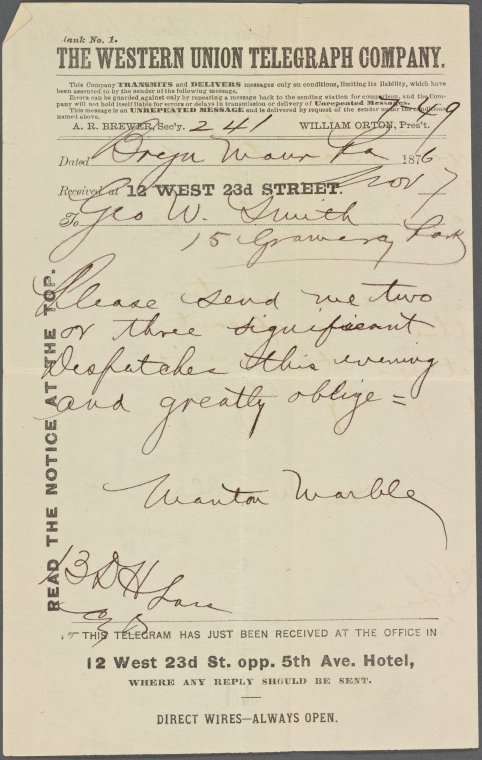 Blank No. 1.
THE WESTERN UNION TELEGRAPH COMPANY.
This Company TRANSMITS and DELIVERS messages only on conditions, limiting its liability, which have
been assented to by the sender of the following message.
Errors can be guarded against only by repeating a message back to the sending station for comparison, and the Com-
pany will not hold itself liable for errors or delays in transmission or delivery of Unrepeated Messages.
This message is an UNREPEATED MESSAGE and is delivered by request of the sender under the conditions
named above.
A. R. BREWER, Sec'y. 241 WILLIAM ORTON, Pres't.
Dated Bryn Mawr Pa 1876
Received at 12 WEST 23d STREET. Nov 7
To Geo W. Smith
15 Gramercy Park
Please send me two
or three significant
Despatches this evening
and greatly oblige =
Manton Marble
READ THE NOTICE AT THE TOP.
13 DH
THIS TELEGRAM HAS JUST BEEN RECEIVED AT THE OFFICE IN
12 West 23d St. opp. 5th Ave. Hotel,
WHERE ANY REPLY SHOULD BE SENT.
DIRECT WIRES—ALWAYS OPEN.